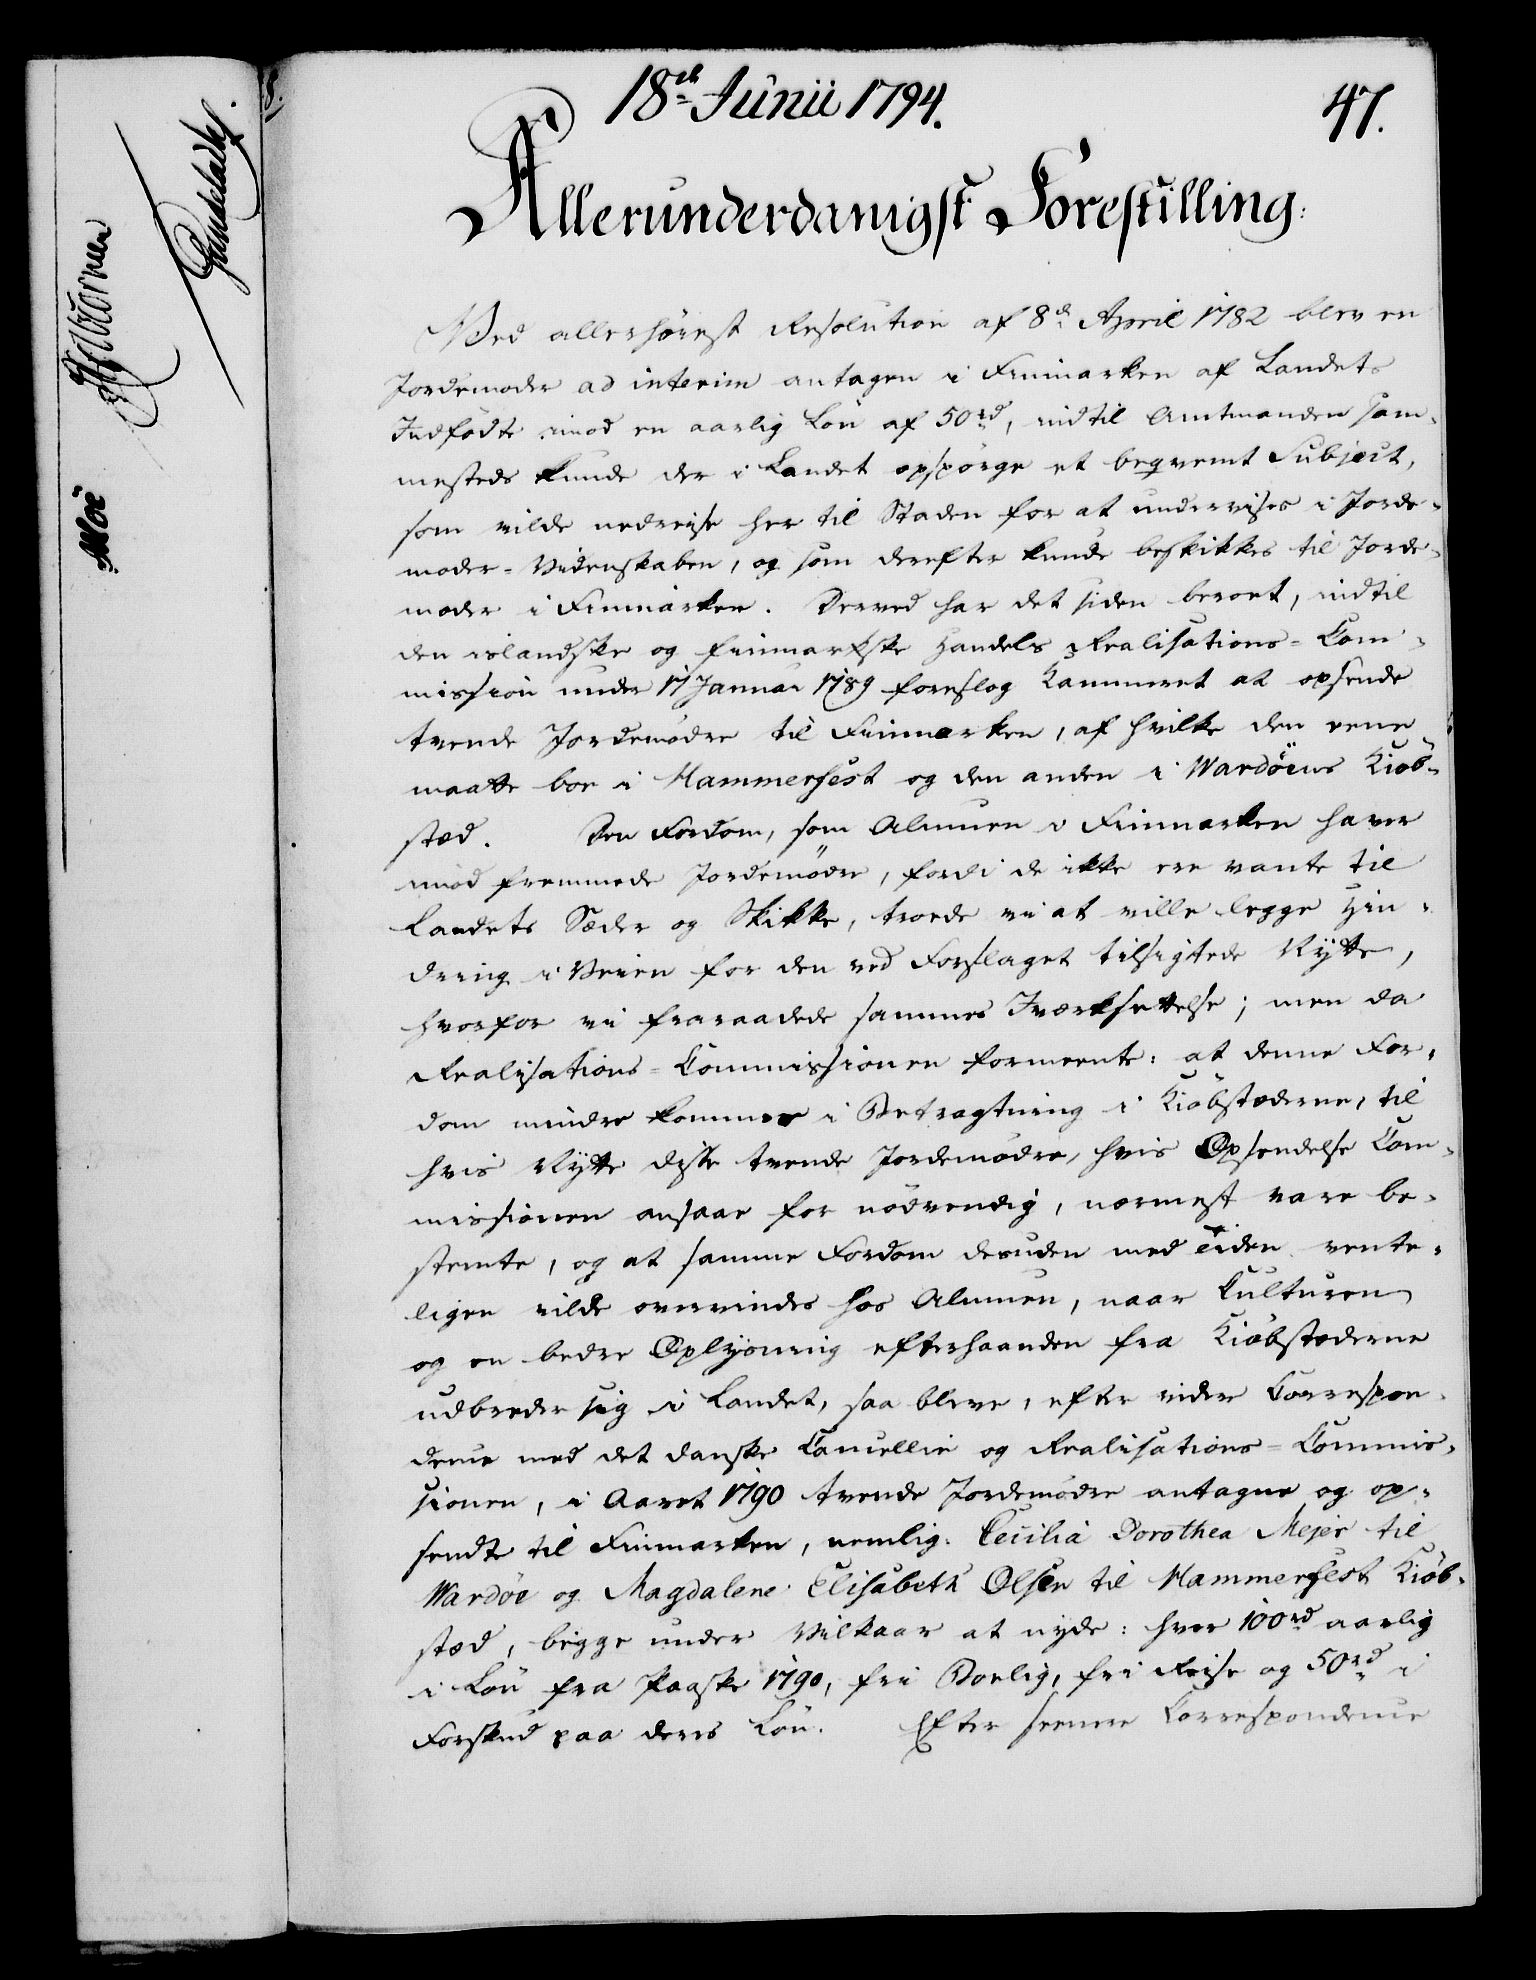 18de Junii 1794.
47.
Allerunderdanigst Forestilling:
Ved allerhöiest Resolution af 8de April 1782 blev en
Jordemoder ad interim antagen i Finmarken af Landets
Indfödte imod en aarlig Lön af 50rd, indtil Amtmanden sam-
mesteds kunde der i Landet opspörge et beqvemt Subject,
som vilde nedreise her til Staden for at undervises i Jorde-
moder-Videnskaben, og som derefter kunde beskikkes til Jorde-
moder i Finmarken. Derved har det siden beroet, indtil
den islandske og finmarkske Handels Realisations-Com-
mission under 17 Januar 1789 foreslog Kammeret at opsende
tvende Jordemödre til Finmarken, af hvilke den eene
maatte boe i Hammerfest og den anden i Wardöens Kiöb-
stæd. Den Fordom, som Almuen i Finmarken haver
imod fremmede Jordemödre, fordi de ikke ere vante til
Landets Sæder og Skikke, troede vi at ville legge Hin-
dring i Veien for den ved Forslaget tilsigtede Nytte,
hvorfor vi fraraadede sammes Iværksettelse; men da
Realisations-Commissionen formeente: at denne For-
dom mindre kommer i Betragtning i Kiöbstæderne, til
hvis Nytte disse tvende Jordemödre, hvis Opsendelse Com-
missionen ansaae for nödvendig, nærmest vare be-
stemte, og at samme Fordom desuden med Tiden vente-
ligen vilde overvindes hos Almuen, naar Kulturen
og en bedre Oplysning efterhaanden fra Kiöbstæderne
udbreder sig i Landet, saa bleve, efter videre Correspon-
dence med det danske Cancellie og Realisations-Commis-
sionen, i Aaret 1790 tvende Jordemödre antagne og op-
sendte til Finmarken, nemlig: Cecilia Dorothea Mejer til
Wardöe og Magdalene Elisabeth Olsen til Hammerfest Kiöb-
stæd, begge under Vilkaar at nyde: hver 100rd aarlig
i Lön fra Paaske 1790, fri Boelig, fri Reise og 50rd i
Forskud paa deres Lön. Efter seenere Correspondence
Moe